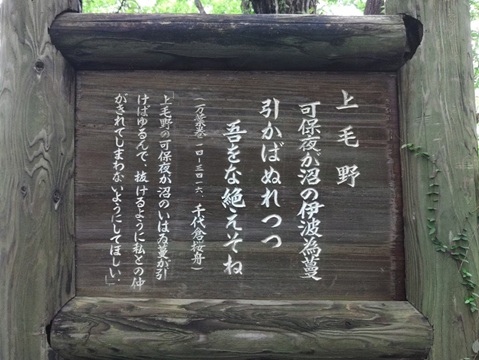 上毛野
可保夜が沼の伊波為蔓
引かばぬれつつ
吾をな絶えそね
(万葉巻一四-三四一六、千代倉桜舟)
「上毛野の可保夜が沼のいはゐ蔓が引
けばゆるんで、抜けるように私との仲
がきれてしまわないようにしてほしい.」